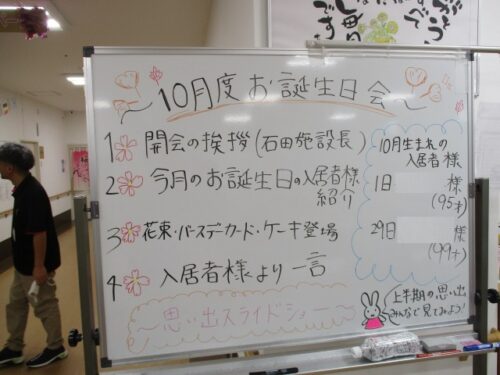 10月度お誕生日会
1 開会の挨拶(石田施設長)
2 今月のお誕生日の入居者様
紹介
3 花束・バースデカード・ケーキ登場
4 入居者様より一言
〜思い出スライドショー〜
10月生まれの
入居者様
1日 様
(95才)
29日 様
(99才)
上半期の思い出
みんなで見てみよう!